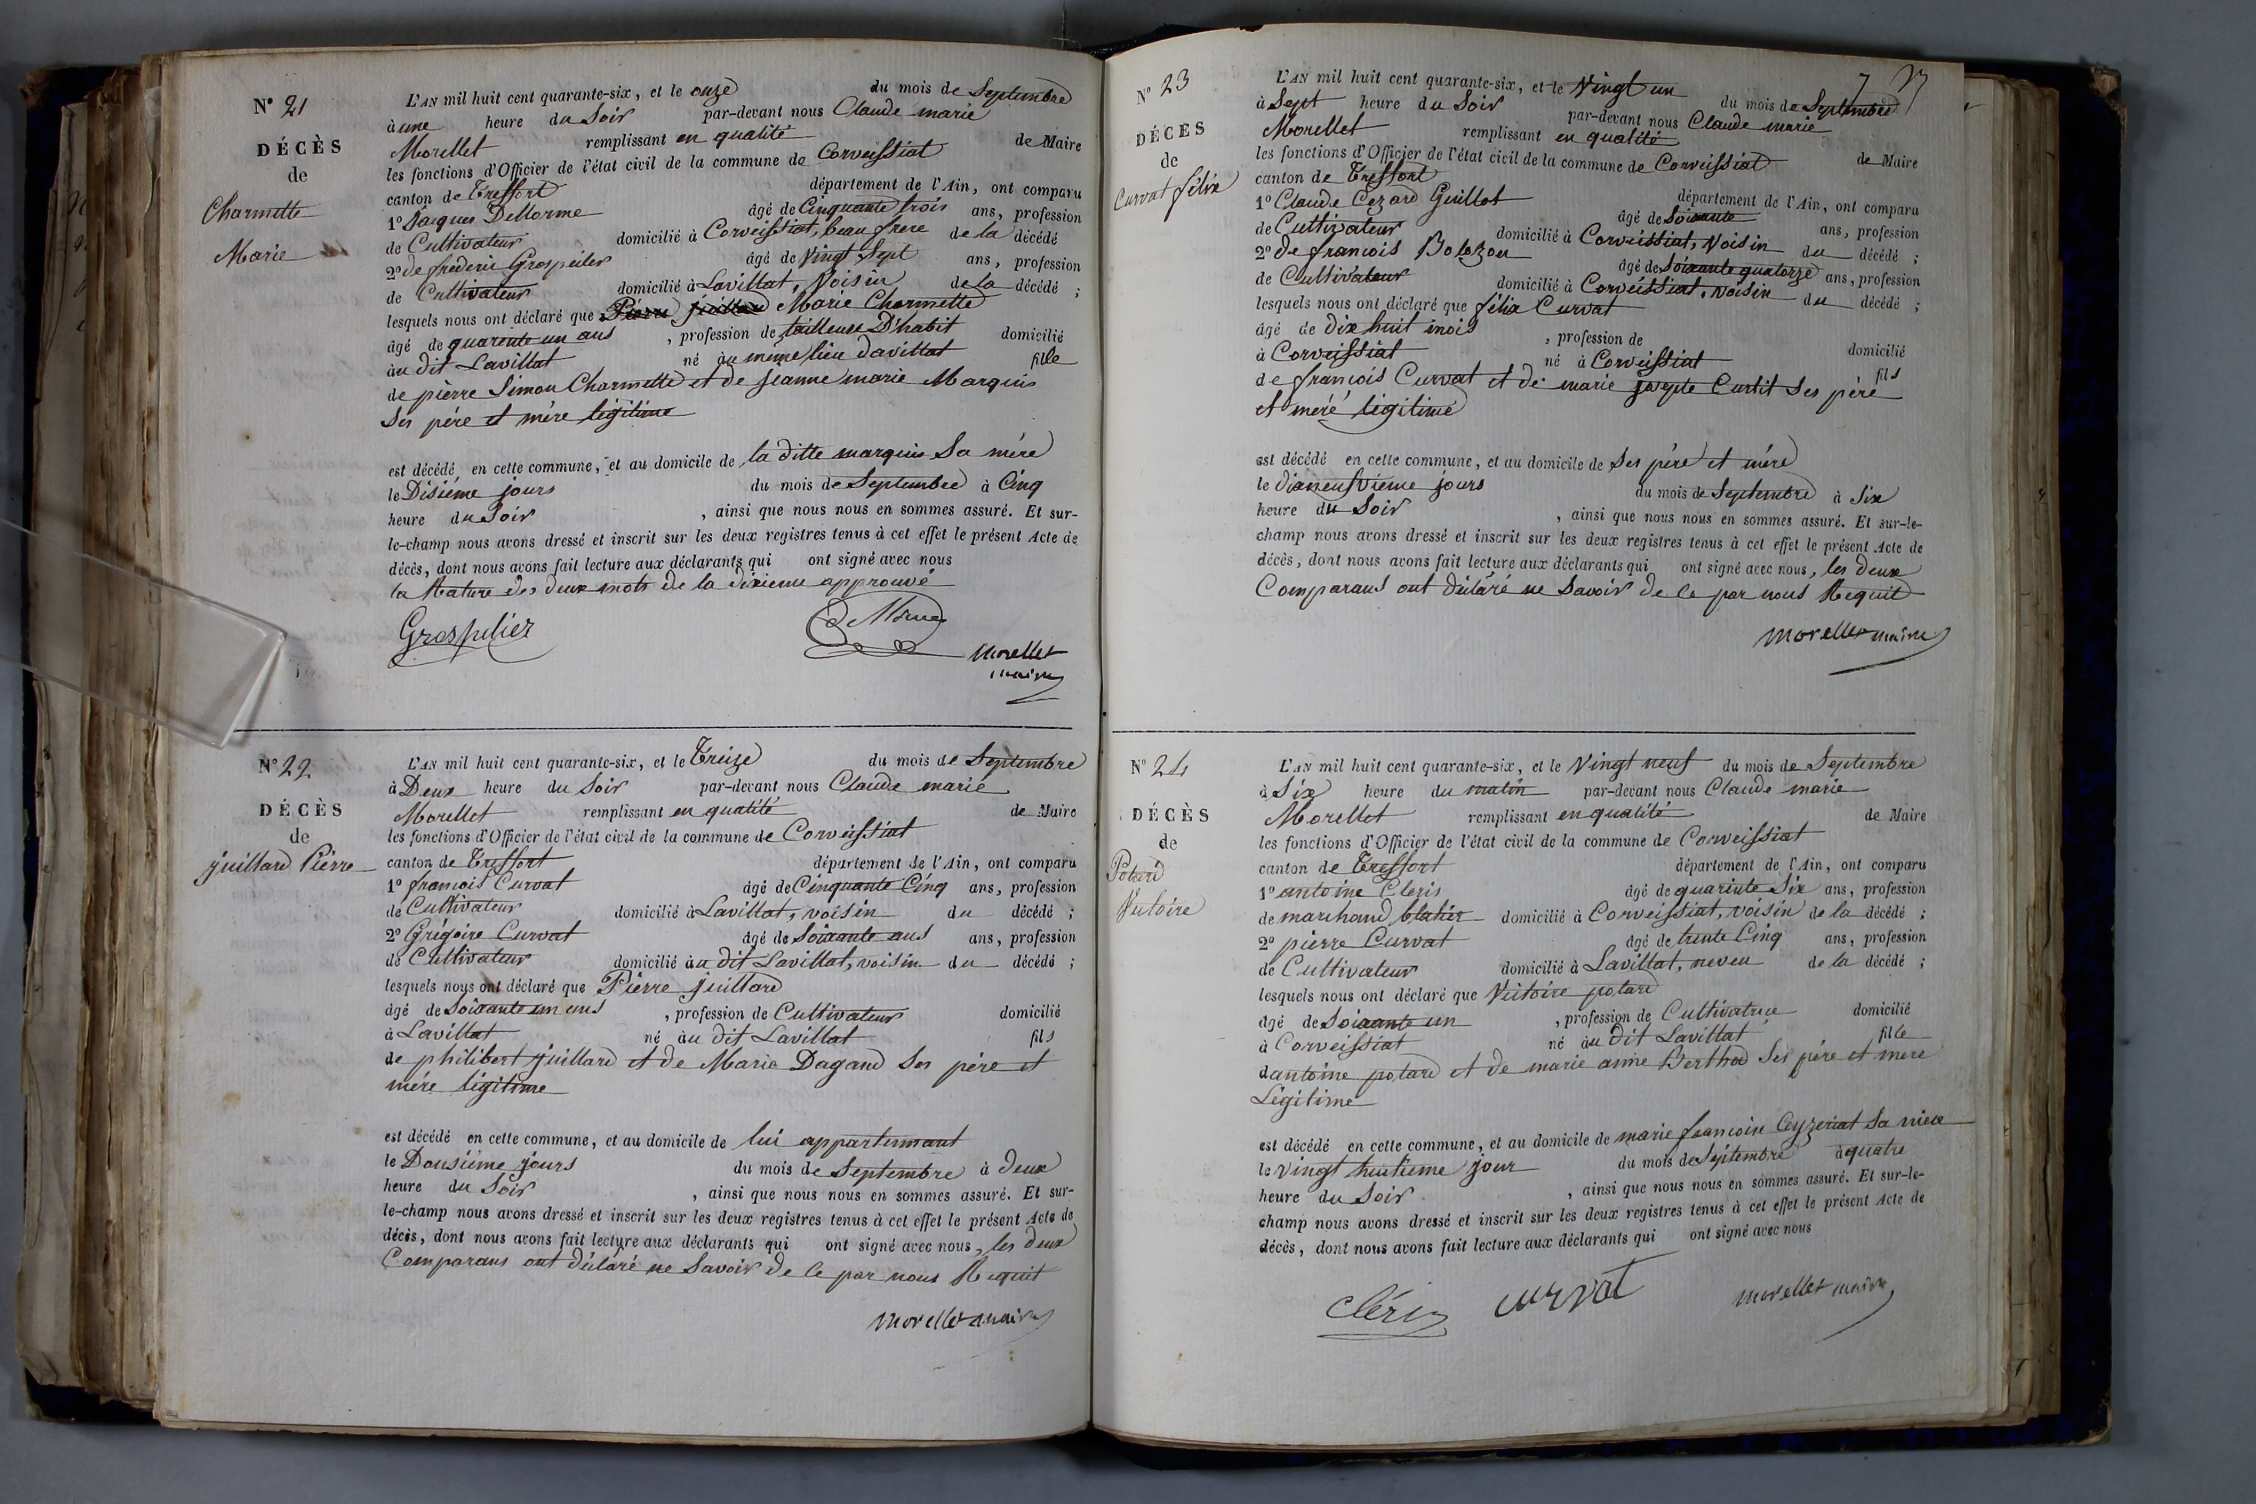 N° 21
DÉCÈS
de
Charmette
Marie
L'AN mil huit cent quarante-six, et le onze du mois de Septembre
à une heure du Soir par-devant nous Claude marie
Morellet remplissant en qualité de Maire
les fonctions d'Officier de l'état civil de la commune de Corveissiat
canton de Treffort département de l'Ain, ont comparu
1° Jacques Dellorme âgé de Cinquante trois ans, profession
de Cultivateur domicilié à Corveissiat, beau frere de la décédé
2° de frederic Grospelier âgé de Vingt Sept ans, profession
de Cultivateur domicilié à Lavillat, Voisin de la décédé ;
lesquels nous ont déclaré que Pierre juillard Marie Charmette
âgé de quarente un ans , profession de tailleuse D'habit domicilié
au dit Lavillat né au même lieu davillat fille
de pièrre Simon Charmette et de jeanne marie Marquis
Ses pére et mére légitime
est décédé en cette commune, et au domicile de la ditte marquis Sa mére
le Disiéme jours du mois de Septembre à Cinq
heure du Soir , ainsi que nous nous en sommes assuré. Et sur-
le-champ nous avons dressé et inscrit sur les deux registres tenus à cet effet le présent Acte de
décès, dont nous avons fait lecture aux déclarants qui ont signé avec nous
la Rature des deux mots de la dixieme approuvé
Grospelier
Morellet
maire
N° 22
DÉCÈS
de
juillard Piérre
L'AN mil huit cent quarante-six, et le Treize du mois de Septembre
à Deux heure du Soir par-devant nous Claude marie
Morellet remplissant en qualité de Maire
les fonctions d'Officier de l'état civil de la commune de Corveissiat
canton de Treffort département de l'Ain, ont comparu
1° francois Curvat âgé de Cinquante Cinq ans, profession
de Cultivateur domicilié à Lavillat, voisin du décédé ;
2° Grégoire Curvat âgé de Soixante ans ans, profession
de Cultivateur domicilié au dit Lavillat, voisin du décédé ;
lesquels nous ont déclaré que Piérre juillard
âgé de Soixante un ans , profession de Cultivateur domicilié
à Lavillat né au dit Lavillat fils
de philibert juillard et de Marie Dagand Ses pére et
mére légitime
est décédé en cette commune, et au domicile de lui appartennant
le Dousiéme jours du mois de Septembre à deux
heure du Soir , ainsi que nous nous en sommes assuré. Et sur-
le-champ nous avons dressé et inscrit sur les deux registres tenus à cet effet le présent Acte de
décès, dont nous avons fait lecture aux déclarants qui ont signé avec nous, les deux
Comparans ont déclaré ne Savoir de ce par nous Requit
Morellet maire
7
N° 23
DÉCÈS
de
Curvat félix
L'AN mil huit cent quarante-six, et le Vingt un du mois de Septembre
à Sept heure du Soir par-devant nous Claude marie
Morellet remplissant en qualité de Maire
les fonctions d'Officier de l'état civil de la commune de Corveissiat
canton de Treffort département de l'Ain, ont comparu
1° Claude Cezard Guillot âgé de Soixante ans, profession
de Cultivateur domicilié à Corveissiat, Voisin du décédé ;
2° de francois Bolozon âgé de Soixante quatorze ans, profession
de Cultivateur domicilié à Corveissiat, voisin du décédé ;
lesquels nous ont déclaré que félix Curvat
âgé de dix huit mois , profession de domicilié
à Corveissiat né à Corveissiat fils
de francois Curvat et de marie josepte Curtit Ses pére
et meré légitime
est décédé en cette commune, et au domicile de Ses pére et mére
le dixneufvieme jours du mois de Septembre à Six
heure du Soir , ainsi que nous nous en sommes assuré. Et sur-le-
champ nous avons dressé et inscrit sur les deux registres tenus à cet effet le présent Acte de
décès, dont nous avons fait lecture aux déclarants qui ont signé avec nous, les deux
Comparans ont déclaré ne Savoir de ce par nous Requit
Morellet maire
N° 24
DÉCÈS
de
Potard
Victoire
L'AN mil huit cent quarante-six, et le Vingt neuf du mois de Septembre
à Six heure du matin par-devant nous Claude marie
Morellet remplissant en qualité de Maire
les fonctions d'Officier de l'état civil de la commune de Corveissiat
canton de Treffort département de l'Ain, ont comparu
1° antoine Cleris âgé de quarinte Six ans, profession
de marchand blatier domicilié à Corveissiat, voisin de la décédé ;
2° pierre Curvat âgé de trente Cinq ans, profession
de Cultivateur domicilié à Lavillat, neveu de la décédé ;
lesquels nous ont déclaré que Victoire potard
âgé de Soixante un , profession de Cultivatrice domicilié
à Corveissiat né au dit Lavillat fille
d antoine potard et de marie anne Berthod Ses pére et mere
Légitime
est décédé en cette commune, et au domicile de marie francoise Ceyzeriat Sa niece
le vingt huitieme jour du mois de Septembre à quatre
heure du Soir , ainsi que nous nous en sommes assuré. Et sur-le-
champ nous avons dressé et inscrit sur les deux registres tenus à cet effet le présent Acte de
décès, dont nous avons fait lecture aux déclarants qui ont signé avec nous
Cléris Curvat Morellet maire